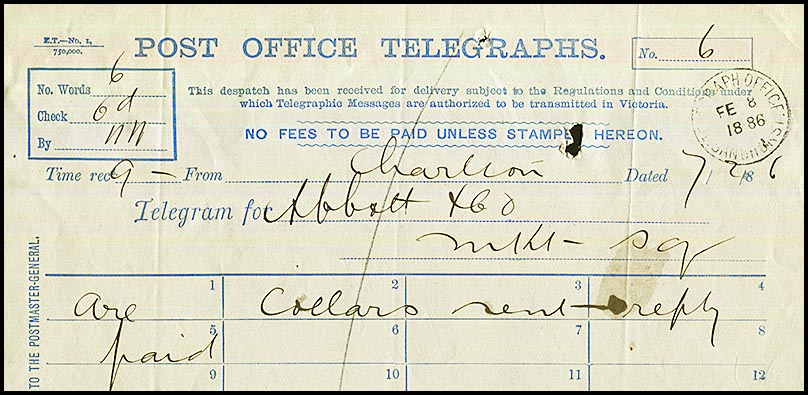 E.T.—No. 1,
750,000.
POST OFFICE TELEGRAPHS.
No. 6
No. Words 6
Check 6d
By
This despatch has been received for delivery subject to the Regulations and Conditions under
which Telegraphic Messages are authorized to be transmitted in Victoria.
NO FEES TO BE PAID UNLESS STAMPED HEREON.
TELEGRAPH OFFICE
FE 8
1886
SANDHURST
Time rec 9 — From Charlton Dated 7/2/86
Telegram for Abbott & Co
Mkt Sq
TO THE POSTMASTER-GENERAL.
1 2 3 4
are Collars sent reply
5 6 7 8
paid
9 10 11 12